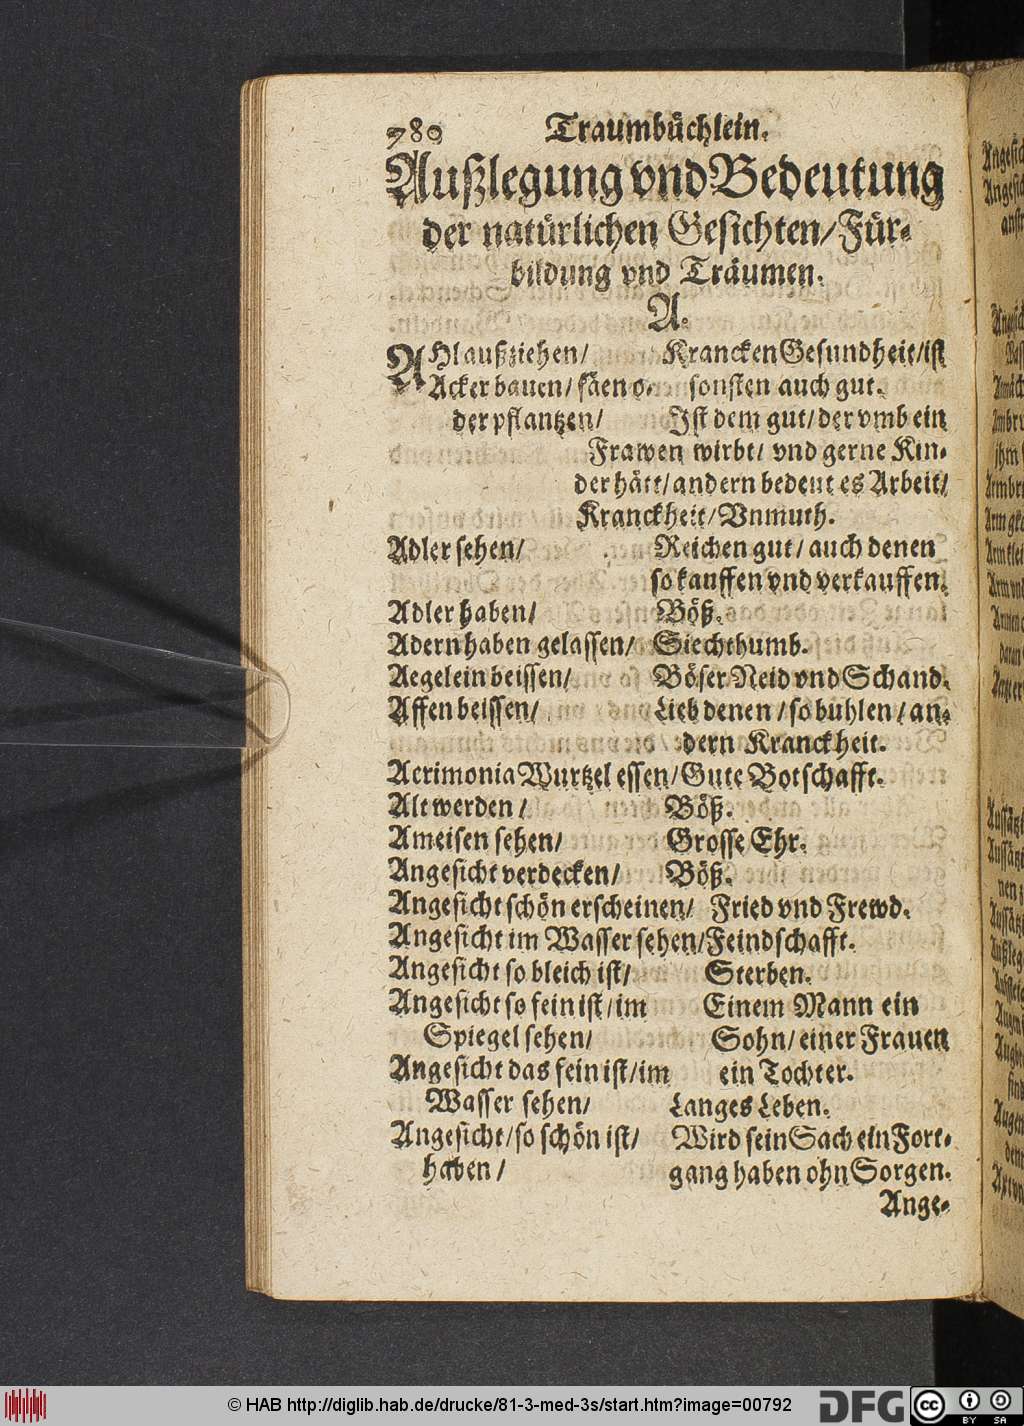 780 Traumbüchlein.
Außlegung vnd Bedeutung
der natürlichen Gesichten/ Für-
bildung vnd Träumen.
A.
AHl außziehen/ Krancken Gesundheit/ ist
Acker bauen/ säen o- sonsten auch gut.
der pflantzen/ Ist dem gut/ der vmb ein
Frawen wirbt/ vnd gerne Kin-
der hätt/ andern bedeut es Arbeit/
Kranckheit/ Vnmuth.
Adler sehen/ Reichen gut/ auch denen
so kauffen vnd verkauffen.
Adler haben/ Böß.
Adern haben gelassen/ Siechthumb.
Aegelein beissen/ Böser Neid vnd Schand.
Affen beissen/ Lieb denen/ so buhlen/ an-
dern Kranckheit.
Acrimonia Wurtzel essen/ Gute Botschafft.
Alt werden/ Böß.
Ameisen sehen/ Grosse Ehr.
Angesicht verdecken/ Böß.
Angesicht schön erscheinen/ Fried vnd Frewd.
Angesicht im Wasser sehen/ Feindschafft.
Angesicht so bleich ist/ Sterben.
Angesicht so fein ist/ im Einem Mann ein
Spiegel sehen/ Sohn/ einer Frauen
Angesicht das fein ist/ im ein Tochter.
Wasser sehen/ Langes Leben.
Angesicht/ so schön ist/ Wird sein Sach ein Fort-
haben/ gang haben ohn Sorgen.
Ange-
© HAB http://diglib.hab.de/drucke/81-3-med-3s/start.htm?image=00792
DFG
cc
BY SA